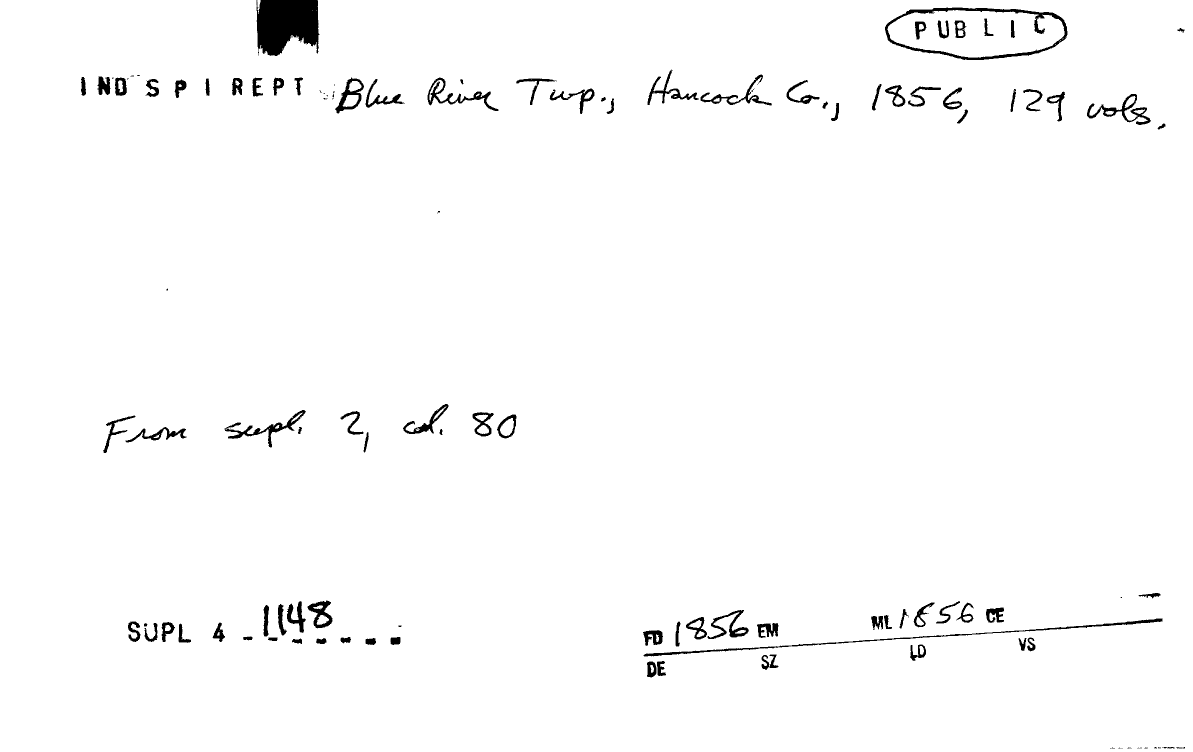 PUBLIC
IND SPI REPT Blue River Twp., Hancock Co., 1856, 129 vols.
From supl. 2, col. 80
SUPL 4 - 1148
FD 1856 EM ML 1856 CE
DE SZ LD VS